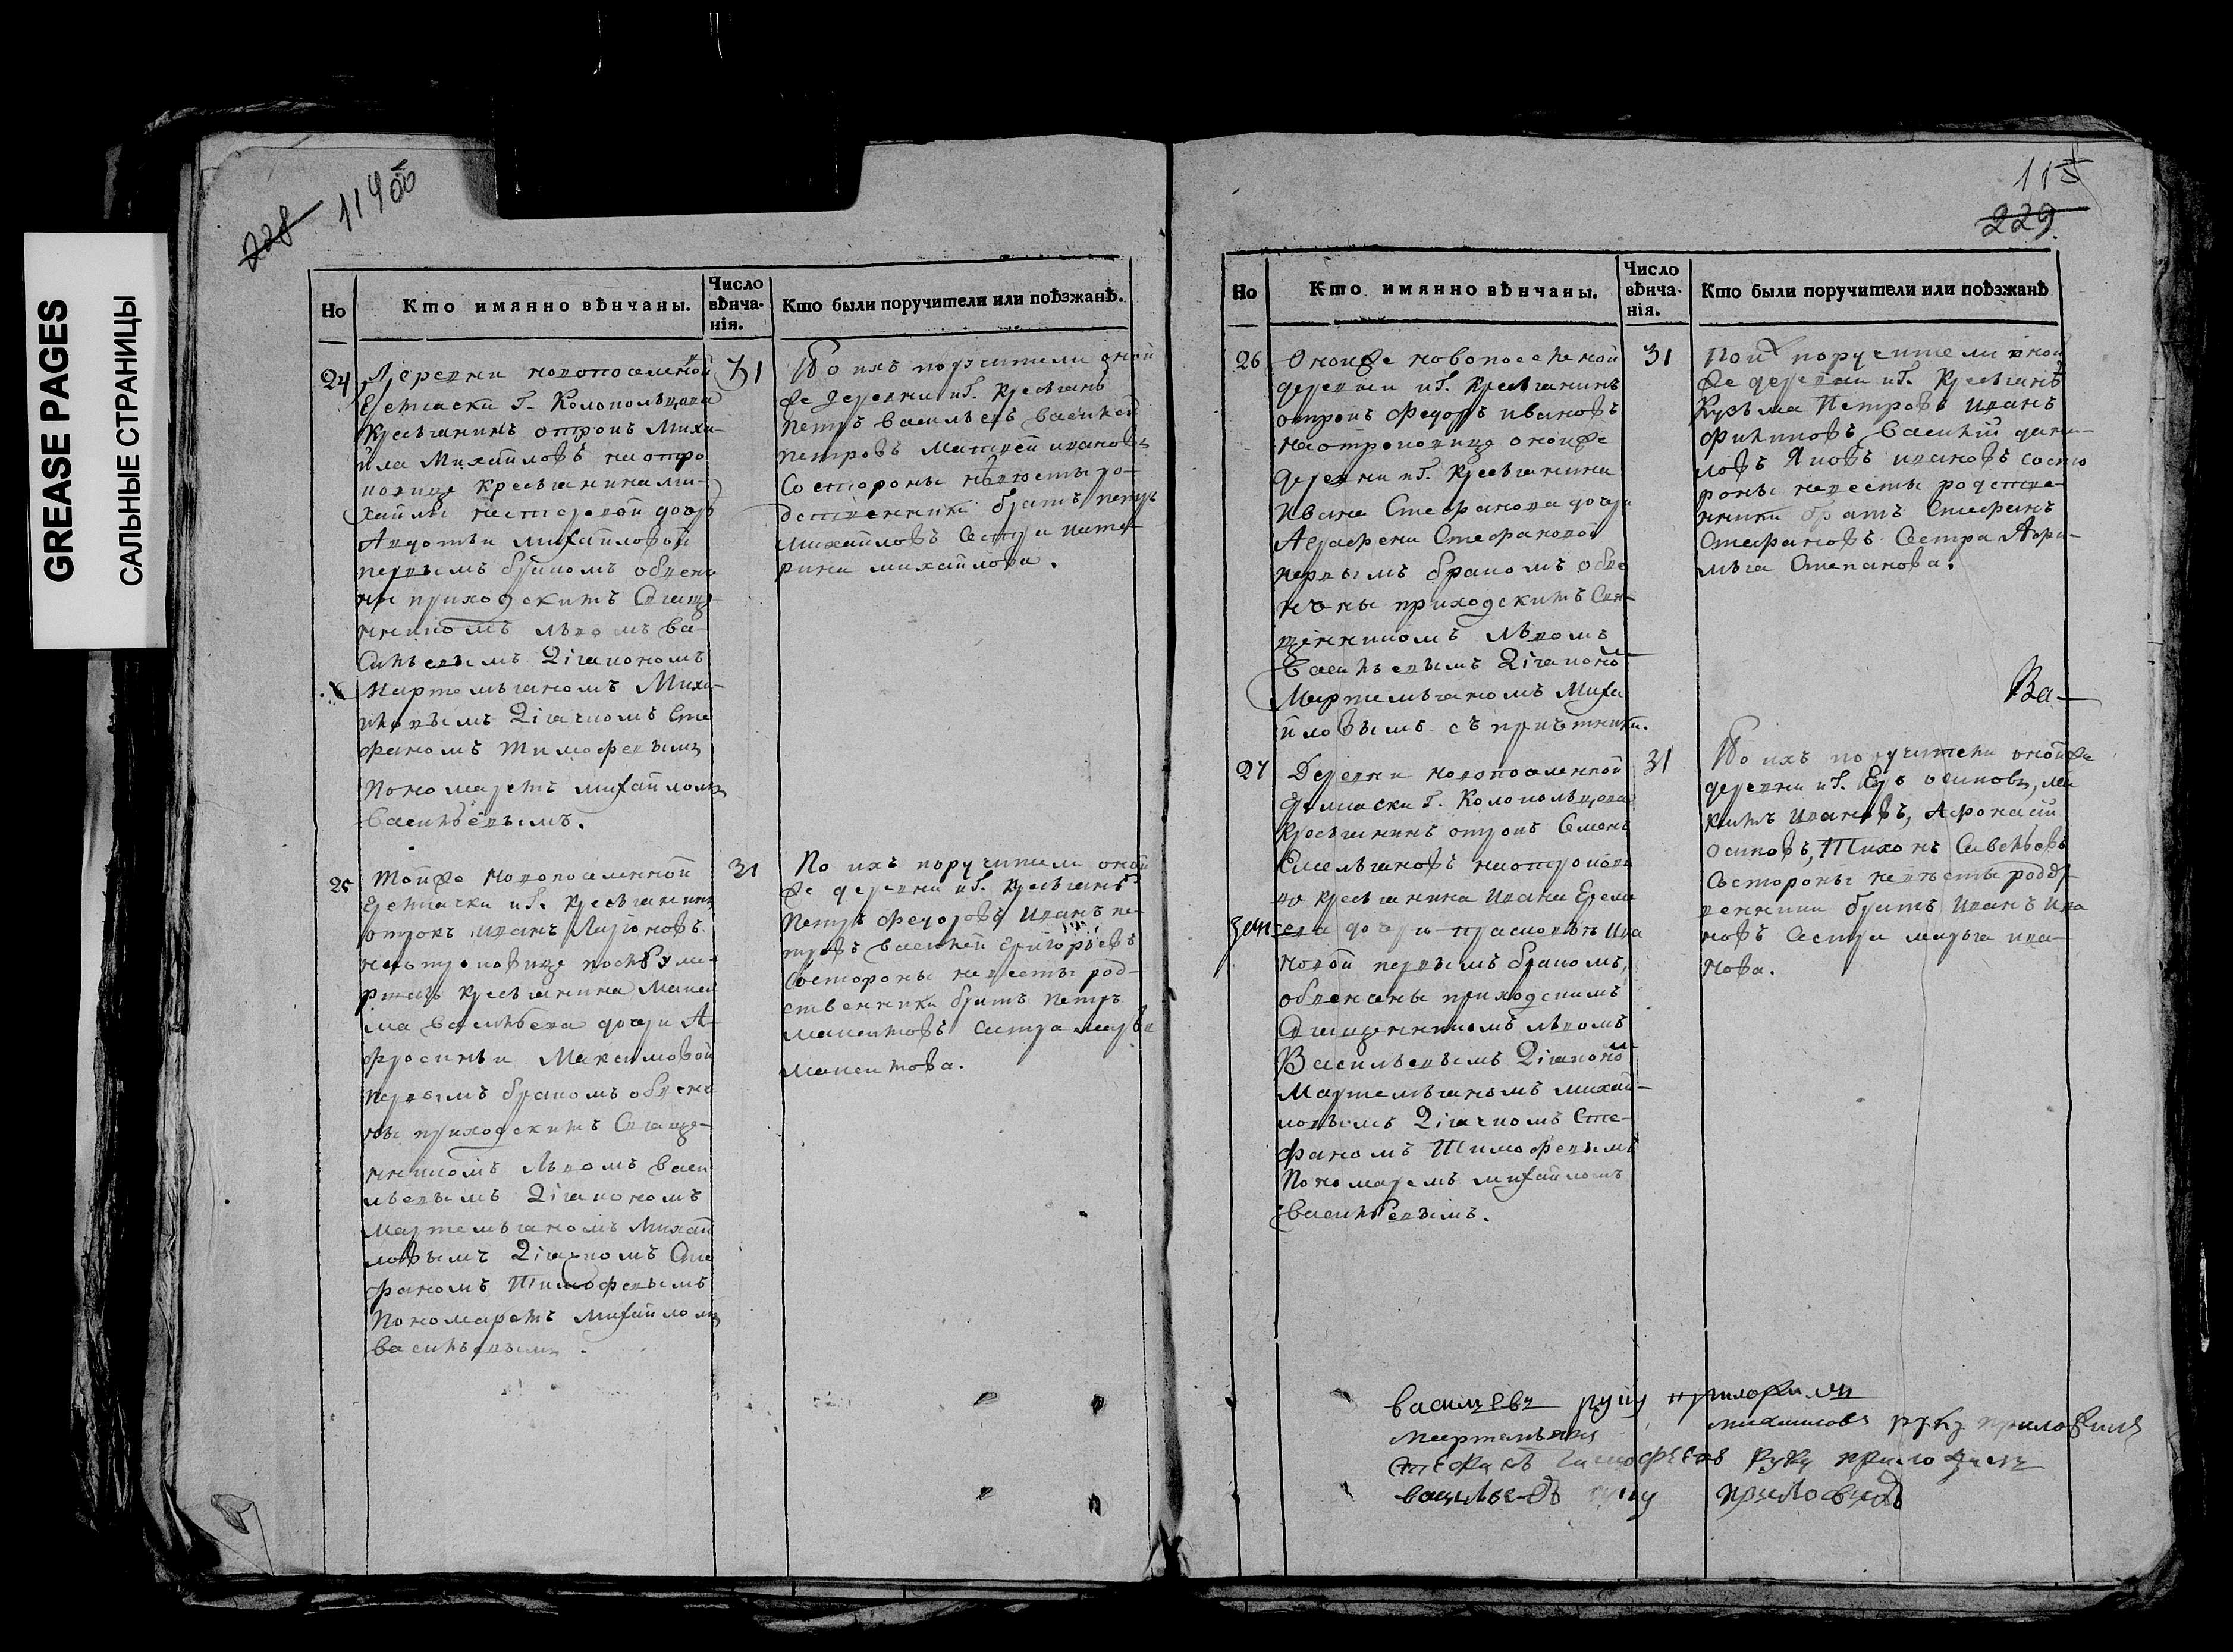 GREASE PAGES
САЛЬНЫЕ СТРАНИЦЫ
228 114 об
Но
Кто имянно вѣнчаны.
Число вѣнча-
нія.
Кто были поручители или поѣзжанѣ.
24
Деревни новопоселенной
г. Колопольцова
Крестьянинъ отрокъ Миха-
йла Михайловъ на отро
ковице крестьянина Ми-
хайлы дочерь
Авдотьи Михайловой
первымъ бракомъ обвенча
ны приходскимъ Свяще
нникомъ Львомъ Ва-
сильевымъ Діакономъ
Мартемьяномъ Михай-
ловымъ Діачкомъ Сте
фаномъ Тимофеевымъ
Пономаремъ Михайломъ
Васильевымъ.
31
По ихъ поручители оной
же деревни и г. крестьянѣ
Петръ Васильевъ Василей
Петровъ Матвей Ивановъ
Со стороны невесты ро-
дственники братъ Петръ
Михайловъ Сестра Кате-
рина Михайлова.
25
Тойже новопоселенной
и г. крестьянинъ
отрокъ Иванъ Ларіоновъ
на отроковице после уме-
ршаго крестьянина Макси
ма Васильева дочери А-
фросиньи Максимовой
первымъ бракомъ обвенча
ны приходскимъ Свяще-
нникомъ Львомъ Васи
льевымъ Діакономъ
Мартемьяномъ Михай
ловымъ Діачкомъ Сте
фаномъ Тимофеевымъ
Пономаремъ Михайломъ
Васильевымъ.
31
По ихъ поручители оной
же деревни и г. крестьянѣ
Петръ Федоровъ Иванъ Пе
тровъ Василей Григорьевъ
Со стороны невесты род-
ственники братъ Петръ
Максимовъ сестра Марья
Максимова.
115
229
Но
Кто имянно вѣнчаны.
Число вѣнча-
нія.
Кто были поручители или поѣзжанѣ
26
Оной же новопоселеной
деревни и г. крестьянинъ
отрокъ Федоръ Ивановъ
на отроковице оной же
деревни и г. крестьянина
Ивана Стефанова дочери
Аграфени Стефановой
первымъ бракомъ обве
нчаны приходскимъ Свя-
щенникомъ Львомъ
Васильевымъ Діаконо
Мартемьяномъ Михa
йловымъ съ причетники.
31
По их поручители оной
же деревни и г. Крестьянѣ
Кузьма Петровъ Иванъ
Филиповъ Василій Дани-
ловъ Яковъ Ивановъ со сто
роны невесты родстве-
нники братъ Стефанъ
Стефановъ Сестра
Степанова.
Ва-
27
Деревни новопоселенной
г. Колопольцова
Крестьянинъ отрокъ Семенъ
Емельяновъ на отрокови
це крестьянина Ивана Ереме
ева дочери Прасковьи Ива
новой первымъ бракомъ,
обвенчаны приходскимъ
Священникомъ Львомъ
Васильевымъ Діаконо
Мартемьяномъ Михай-
ловымъ Діачкомъ Сте-
фаномъ Тимофеевымъ
Пономаремъ Михайломъ
Васильевымъ.
31
По ихъ поручители оной же
деревни и г. Осиповъ,
Ивановъ, Афонасій
Осиповъ, Тихонъ Савельевъ
Со стороны невѣсты родст-
венники братъ Иванъ Ива
новъ Сестра Марья Ива-
нова.
Васильевъ руку приложилъ
Мартемьянъ Михаиловъ руку приложилъ
Стефанъ Тимофеевъ руку приложилъ
Васильевъ руку приложилъ